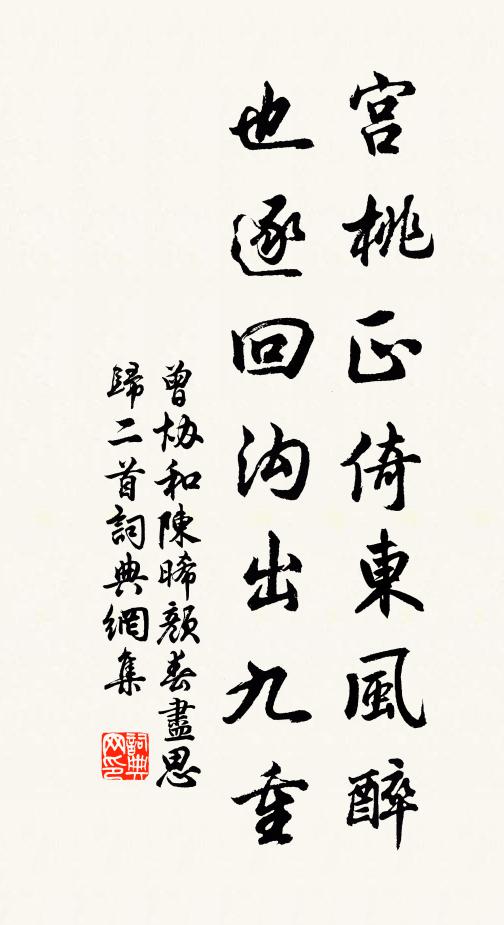 宮桃正倚東風醉
也逐回沟出九重
曾协和陳晞顏春盡思
歸二首詞典網集
詞典
网印